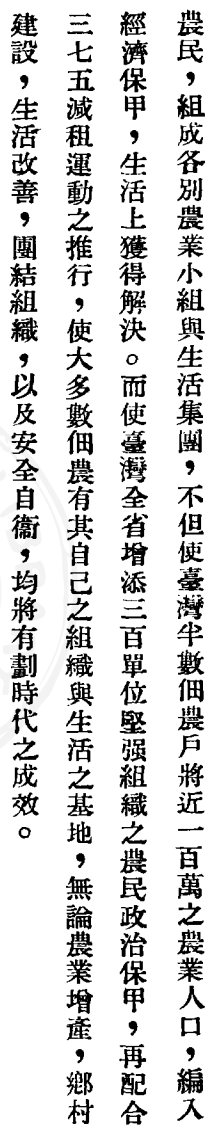 農民，組成各別農業小組與生活集團，不但使臺灣半數佃農戶將近一百萬之農業人口，編入
經濟保甲，生活上獲得解決。而使臺灣全省增添三百單位堅强組織之農民政治保甲，再配合
三七五減租運動之推行，使大多數佃農有其自己之組織與生活之基地，無論農業增產，鄉村
建設，生活改善，團結組織，以及安全自衞，均將有劃時代之成效。